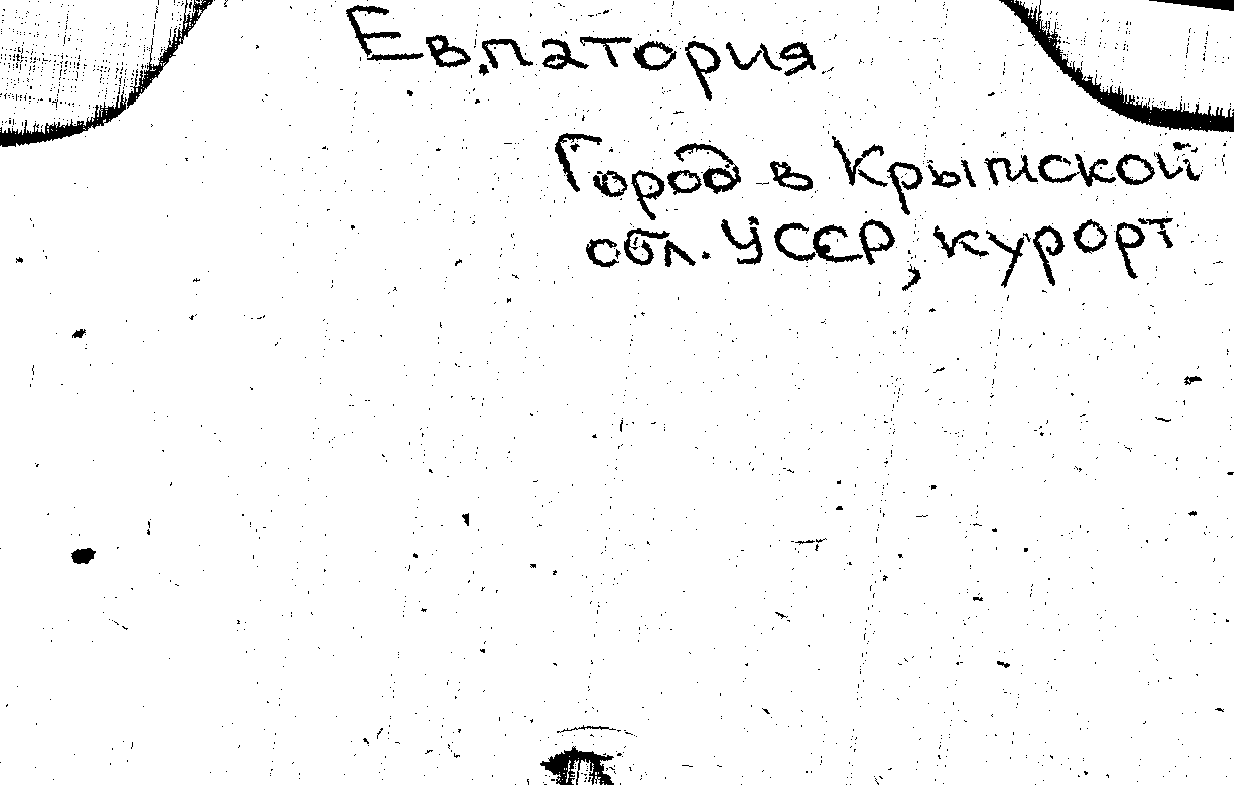 Евпатория
Город в Крымской
обл. УССР, курорт